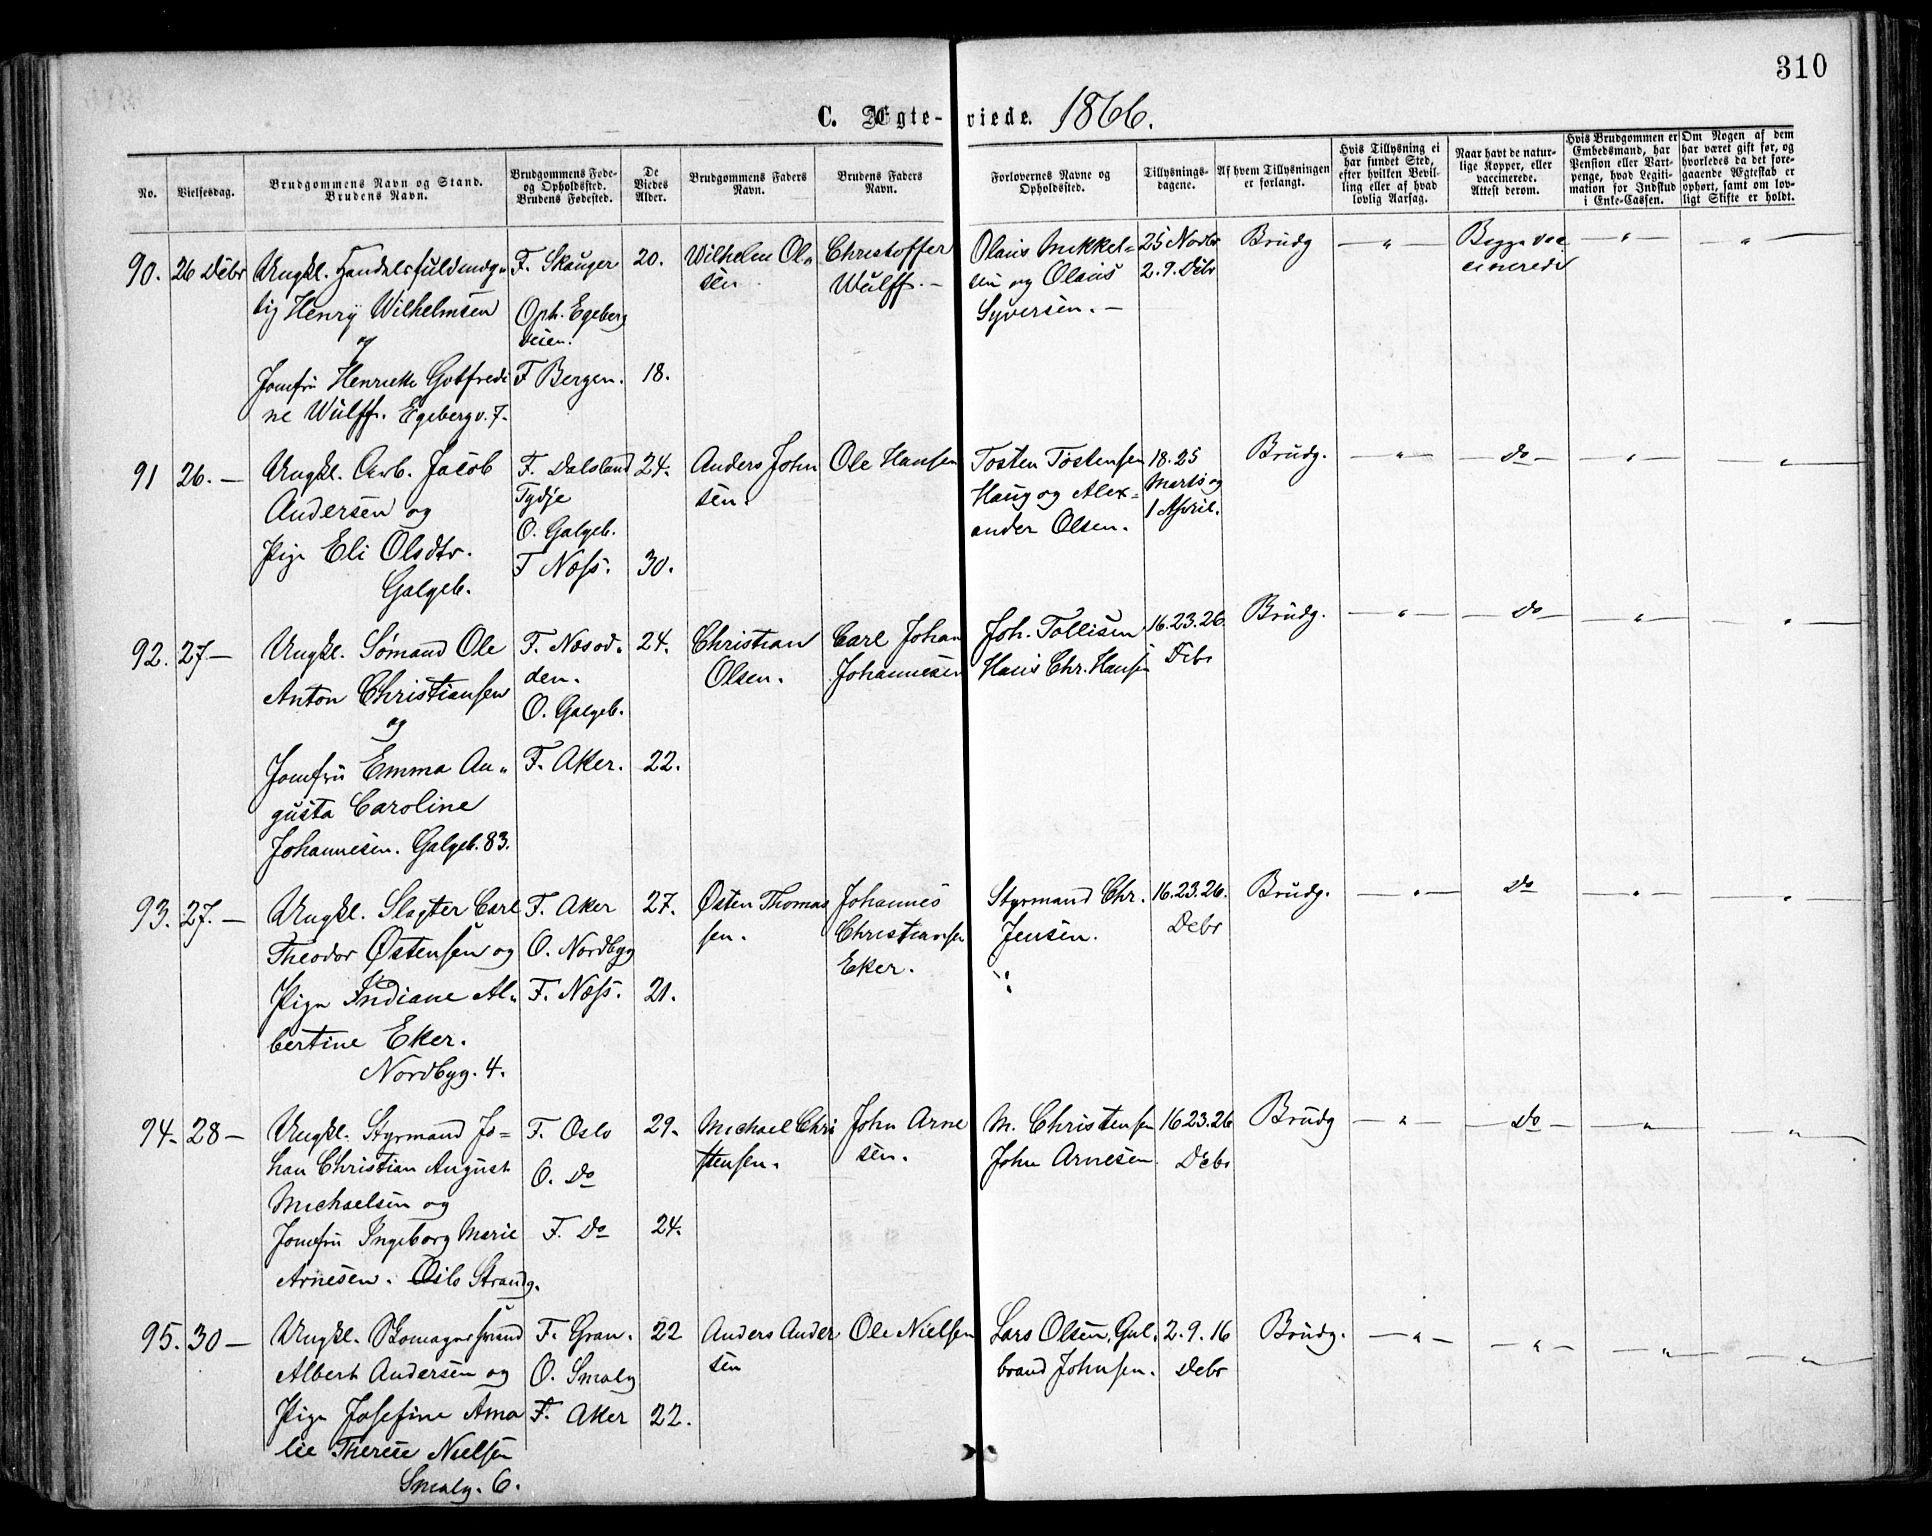 310
C. Ægte-viede. 1866.
No.
Vielsesdag.
Brudgommens Navn og Stand.
Brudens Navn.
Brudgommens Føde-
og Opholdssted.
Brudens Fødested.
De
Viedes
Alder.
Brudgommens Faders
Navn.
Brudens Faders
Navn.
Forlovernes Navne og
Opholdssted.
Tillysnings-
dagene.
Af hvem Tillysningen
er forlangt.
Hvis Tillysning ei
har fundet Sted,
efter hvilken Bevil-
ling eller af hvad
lovlig Aarsag.
Naar havt de natur-
lige Kopper, eller
vaccinerede.
Attest derom.
Hvis Brudgommen er
Embedsmand, har
Pension eller Vart-
penge, hvad Legiti-
mation for Indskud
i Enke-Cassen.
Om Nogen af dem
har været gift før, og
hvorledes da det fore-
gaaende Ægteskab er
ophørt, samt om lov-
ligt Skifte er holdt.
90. 26 Debr
Ungkl. Handelsfuldmæg-
tig Henry Wilhelmsen
og
Jomfru Henriette Gotfredi
ne Wulff. Egebergv. 7.
F. Skauger
Oph. Egeberg
veien.
F Bergen.
20.
18.
Wilhelm Ol-
sen
Christoffer
Wulff. -
Olaus Mikkel-
sen og Olaus
Syversen. -
25 Novbr
2. 9. Debr
Brudg
— " —
Begge vac
cinerede
— " —
"
91 26. —
Ungkl. Arb. Jacob
Andersen og
Pige Eli Olsdtr.
Galgeb.
F. Dalsland
Tydje
O. Galgeb.
F Næss.
24.
30.
Anders John
sen.
Ole Hansen
Tosten Tostensen
Haug og Alex-
ander Olsen.
18. 25
Marts og
1 April.
Brudg.
— " —
— Do —
— " —
"
92. 27. —
Ungkl. Sømand Ole
Anton Christiansen
og
Jomfru Emma Au-
gusta Caroline
Johannesen. Galgeb. 83.
F. Næsod-
den.
O. Galgeb.
F. Aker.
24.
22.
Christian
Olsen.
Carl Johan
Johannesen
Joh. Tollisen
Hans Chr. Hansen
16. 23. 26.
Debr
Brudg.
— " —
— Do —
— " —
"
93. 27. —
Ungkl. Slagter Carl
Theodor Østensen og
Pige Indiane Al-
bertine Eker.
Nordbyg. 4.
F. Aker
O. Nordbyg
F. Næss.
27.
21.
Østen Thomas
sen.
Johannes
Christiansen
Eker.
Styrmand Chr.
Jensen.
16. 23. 26.
Debr
Brudg.
— " —
Do
— " —
"
94. 28 —
Ungkl. Styrmand Jo-
han Christian August
Michaelsen og
Jomfru Ingeborg Marie
Arnesen. Oslo Strandg.
F. Oslo
O. Do
F. Do
29.
24.
Michael Chri
stensen.
John Arne
sen.
M. Christensen
John Arnesen
16 23. 26
Debr
Brudg
— " —
— Do —
"
"
95. 30 —
Ungkl. Skomagersvend
Albert Andersen og
Pige Josefine Ama
lie Therese Nielsen
Smalg. 6.
F. Gran.
O. Smalg
F. Aker
22
22.
Anders Ander
sen
Ole Nielsen
Lars Olsen, Gul-
brand Johnsen.
2. 9. 16
Debr
Brudg.
— " —
— " —
— " —
— " —